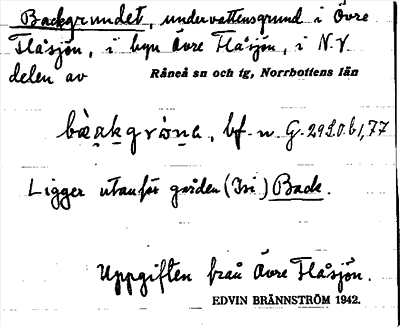 Backgrundet, undervattensgrund i Övre
Flåsjön, i byn Övre Flåsjön, i N.V
delen av Råneå sn och tg, Norrbottens län
bf. n. G. 29 S.O. b 1, 77
Ligger utanför gården (Isi) Back.
Uppgiften från Övre Flåsjön.
EDVIN BRÄNNSTRÖM 1942.